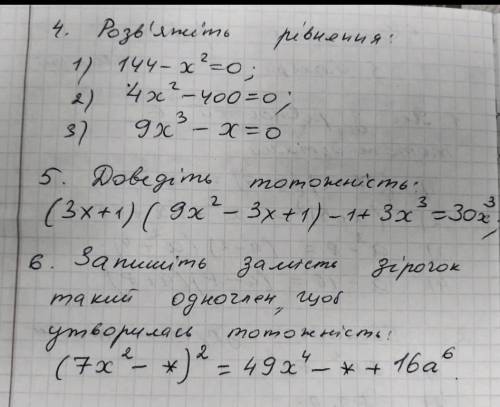 4. Розв'яжіть рівняння:
1) 144 - x² = 0;
2) 4x² - 400 = 0;
3) 9x³ - x = 0
5. Доведіть тотожність:
(3x+1)(9x² - 3x+1) - 1 + 3x³ = 30x³;
6. Запишіть замість зірочок
такий одночлен, щоб
утворилась тотожність:
(7x² - *)² = 49x⁴ - * + 16a⁶.